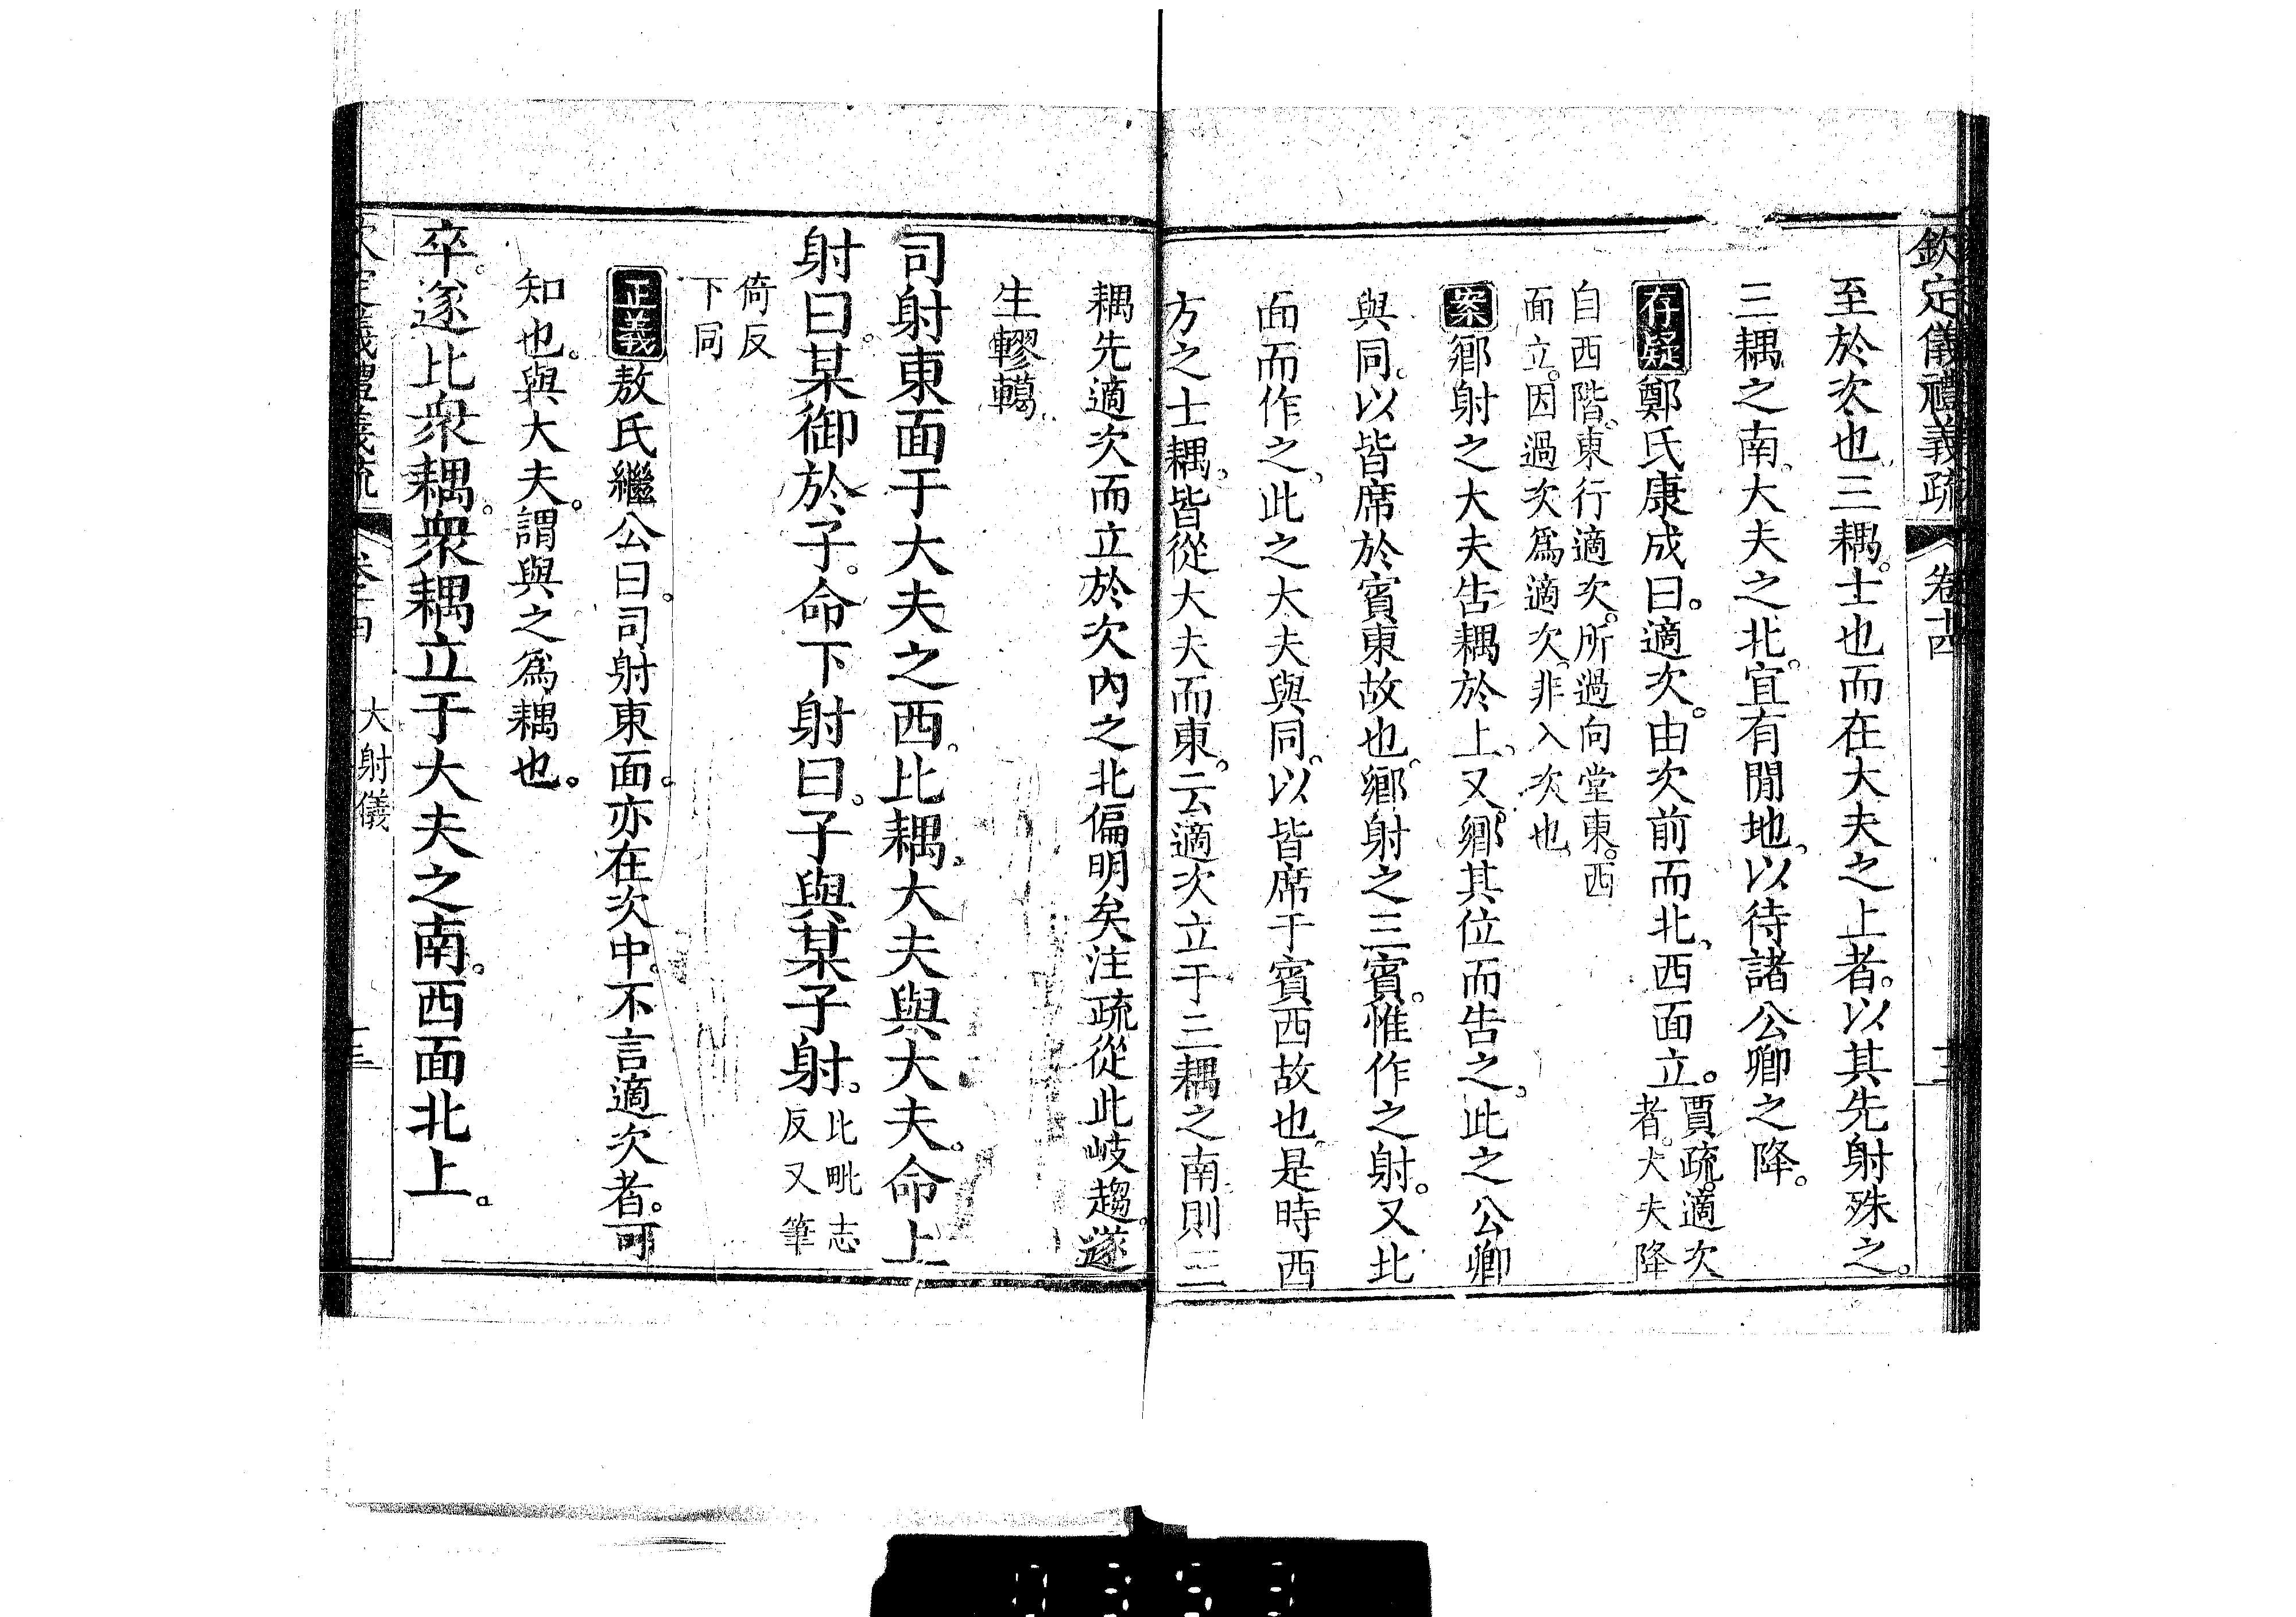 欽定儀禮義疏 卷十四
至於次也三耦士也而在大夫之上者以其先射殊之
三耦之南大夫之北宜有閒地以待諸公卿之降
存疑鄭氏康成曰適次由次前而北西面立賈疏適次
者大夫降
自西階東行適次所過向堂東西
面立因過次爲適次非入次也
案鄉射之大夫告耦於上又鄉其位而告之此之公卿
與同以皆席於賓東故也鄉射之三賓惟作之射又北
面而作之此之大夫與同以皆席于賓西故也是時西
方之士耦皆從大夫而東云適次立于三耦之南則三
耦先適次而立於次內之北偏明矣注疏從此岐趨遂
生轇轕
司射東面于大夫之西比耦大夫與大夫命上
射曰某御於子命下射曰子與某子射比毗志
反又筆
倚反
下同
正義敖氏繼公曰司射東面亦在次中不言適次者可
知也與大夫謂與之爲耦也
卒遂比衆耦衆耦立于大夫之南西面北上
大射儀